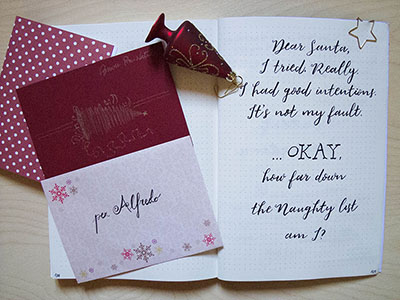 per Alfredo
Dear Santa,
I tried. Really.
I had good intentions.
It's not my fault.
... OKAY,
how far down
the Naughty list
am I?